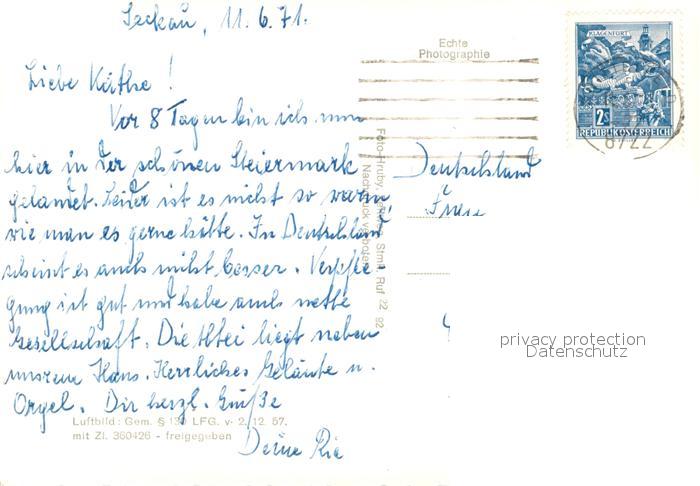 Seckau, 11.6.71.
Liebe Käthe!
Vor 8 Tagen bin ich nun
hier in der schönen Steiermark
gelandet. Leider ist es nicht so warm,
wie man es gerne hätte. In Deutschland
scheint es auch nicht besser. Verpfle-
gung ist gut und habe auch nette
Gesellschaft. Die Abtei liegt neben
unserem Haus. Herrliches Geläute u.
Orgel. Dir herzl. Grüße
Deine Ria
Luftbild: Gem. § 130 LFG. v. 2. 12. 57.
mit Zl. 360426 - freigegeben
Echte
Photographie
Foto-Hruby, Stmk. Ruf 22 92
Nachdruck verboten
KLAGENFURT
2S
REPUBLIK ÖSTERREICH
8722
Deutschland
Frau
privacy protection
Datenschutz